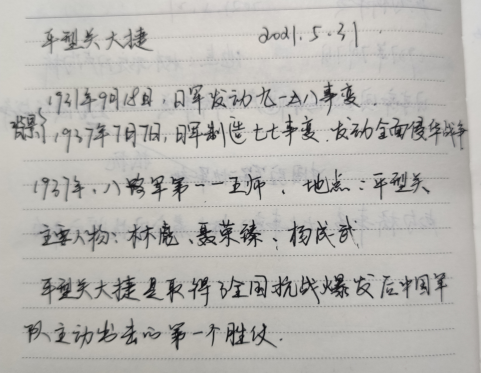 平型关大捷 2021.5.31
1931年9月18日,日军发动九一八事变.
背景 1937年7月7日,日军制造七七事变.发动全面侵华战争
1937年、八路军第一一五师、地点:平型关
主要人物:林彪、聂荣臻、杨成武
平型关大捷是取得了全国抗战爆发后中国军
队主动出击的第一个胜仗.